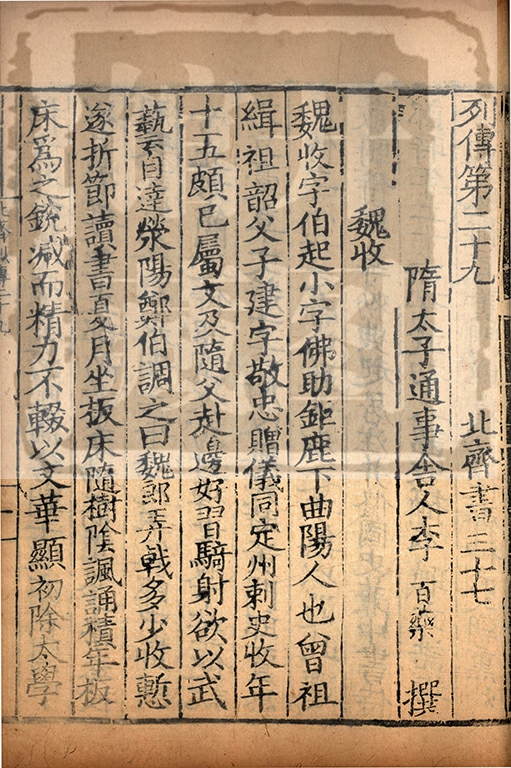 列傳第二十九 北齊書三十七
隋太子通事舍人李 百藥 撰
魏收
魏收字伯起小字佛助鉅鹿下曲陽人也曾祖
緝祖韶父子建字敬忠贈儀同定州刺史收年
十五頗已屬文及隨父赴邊好習騎射欲以武
藝自達滎陽鄭伯調之曰魏郎弄戟多少收慙
遂折節讀書夏月坐板床隨樹陰諷誦積年板
床爲之銳減而精力不輟以文華顯初除太學